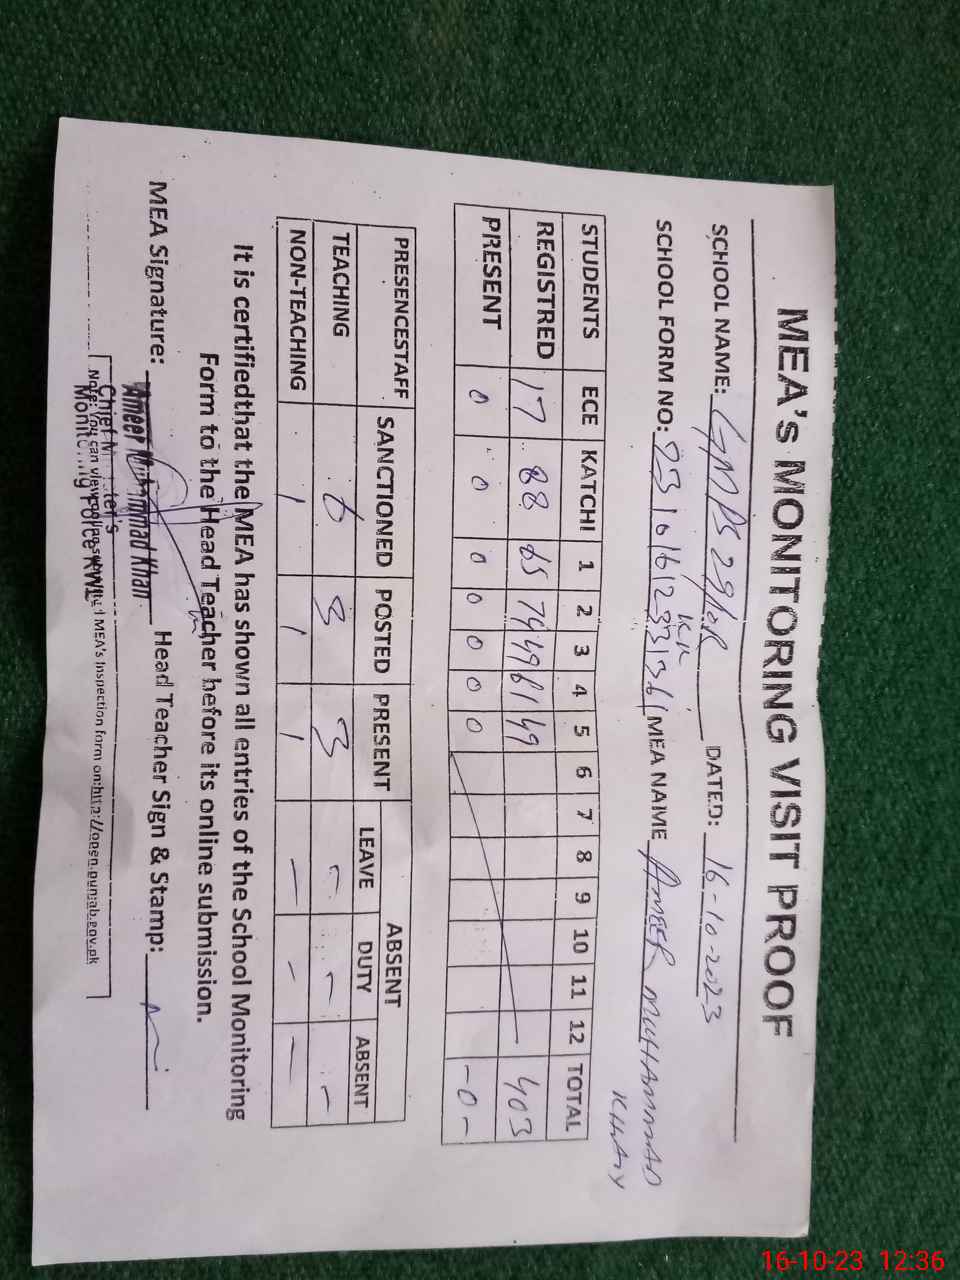 MEA's MONITORING VISIT PROOF
SCHOOL NAME: GMPS 29/10R DATED: 16-10-2023
KK
SCHOOL FORM NO: MEA NAME AMEER MUHAMMAD
KHAN
STUDENTS ECE KATCHI 1 2 3 4 5 6 7 8 9 10 11 12 TOTAL
REGISTRED 17 88 65 74 49 61 49 403
PRESENT 0 0 0 0 0 0 0 -0-
PRESENCESTAFF SANCTIONED POSTED PRESENT ABSENT
LEAVE DUTY ABSENT
TEACHING 6 3 3 - - -
NON-TEACHING 1 1 1 - - -
It is certifiedthat the MEA has shown all entries of the School Monitoring
Form to the Head Teacher before its online submission.
MEA Signature: Head Teacher Sign & Stamp:
Ameer Muhammad Khan
Chief Minister's
Monitoring Force KWL
Note: You can view MEA's Inspection form on:http://open.punjab.gov.pk
16-10-23 12:36